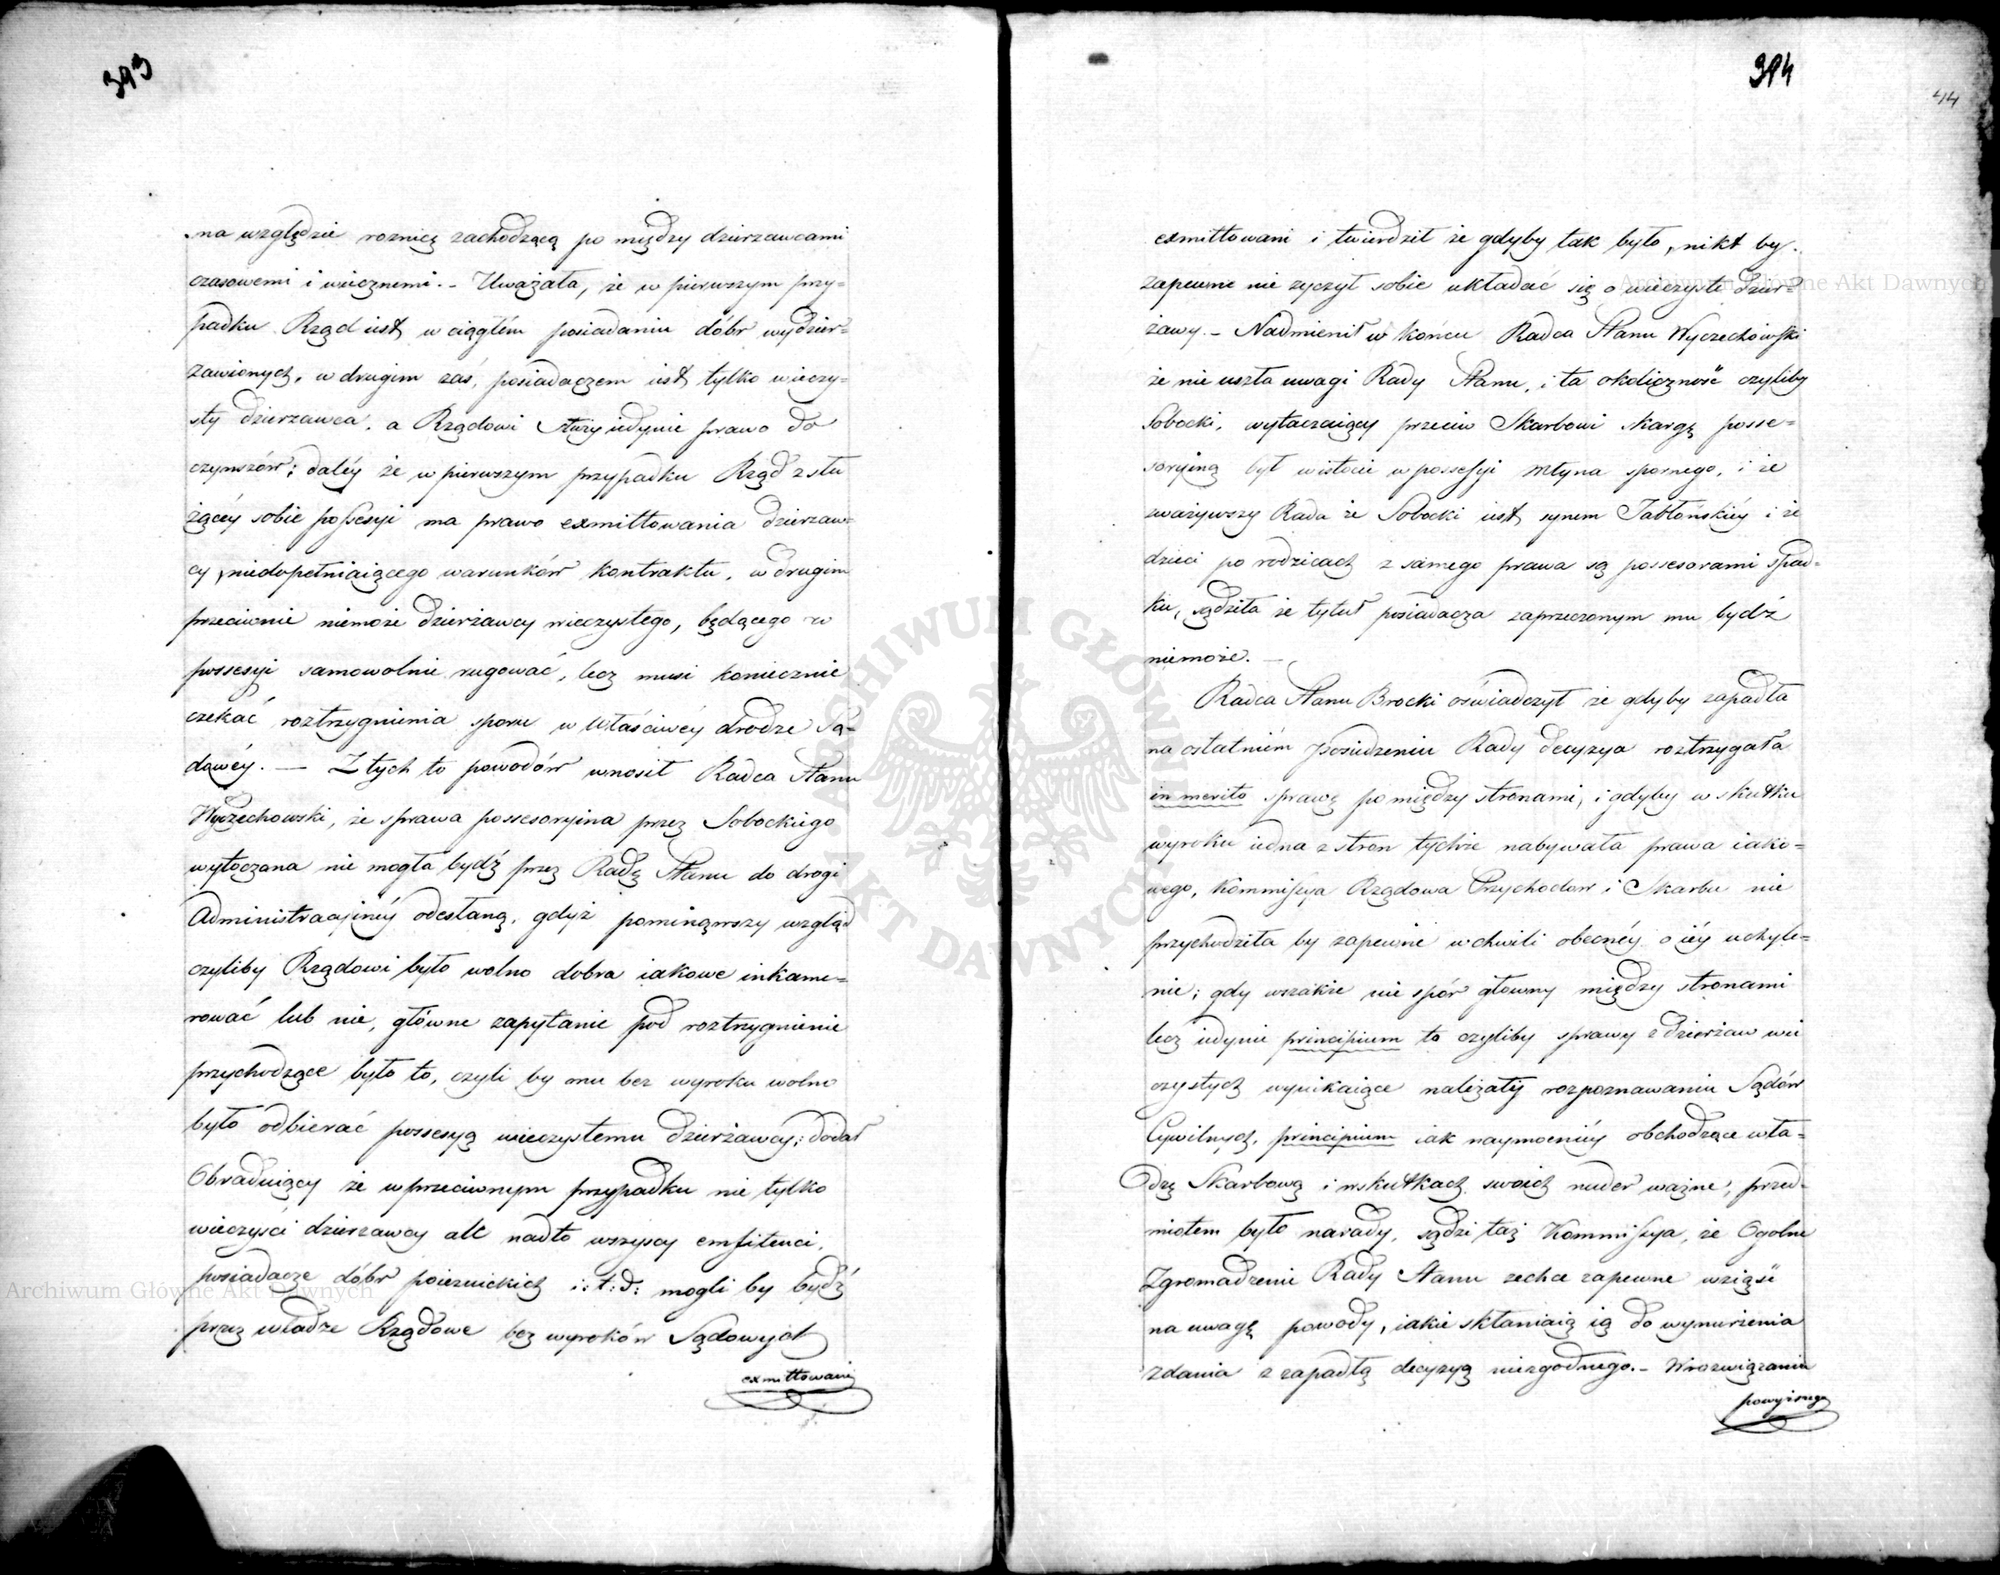 393
na względzie roznicę zachodzącą po między dzierzawcami
czasowemi i wiecznemi. - Uważała, że w pierwszym przy=
padku Rząd iest w ciągłém posiadaniu dóbr wydzier=
zawionych, w drugim zaś, posiadaczem iest tylko wieczy=
sty dzierzawca, a Rządowi służy iedynie prawo do
czynszów; daléy że w pierwszym przypadku Rząd z słu
żącéy sobie possesyi ma prawo exmittowania dzierzaw=
cy, niedopełniaiącego warunków kontraktu, w drugim
przeciwnie niemoże dzierżawcy wieczystego, będącego w
possesyi samowolnie rugować, lecz musi koniecznie
czekać roztrzygnienia sporu w właściwéy drodze Są=
dowéy. — Z tych to powodów wnosił Radca Stanu
Wyczechowski, że sprawa possesoryina przez Sobockiego
wytoczona nie mogła bydź przez Radę Stanu do drogi
Administracyinéy odesłaną, gdyż pominąwszy wzgląd
czyliby Rządowi było wolno dobra iakowe inkame=
rować lub nie, główne zapytanie pod roztrzygnienie
przychodzące było to, czyli by mu bez wyroku wolno
było odbierać possesyą wieczystemu dzierżawcy; dodał
Obraduiący że w przeciwnym przypadku nie tylko
wieczyści dzierzawcy ale nadto wszyscy emfiteuci,
posiadacze dóbr poiezuickich i: t: d: mogli by bydź
przez władze Rządowe bez wyroków Sądowych
exmittowani
394
44
exmittowani i twierdził że gdyby tak było, nikt by
zapewne nie zyczył sobie układać się o wieczyste dzier=
żawy. - Nadmienił w końcu Radca Stanu Wyczechowski
że nie uszła uwagi Rady Stanu, i ta okoliczność czyliby
Sobocki, wytaczaiący przeciw Skarbowi skargę posse=
soryiną był w istocie w possesyi młyna spornego, i że
zważywszy Rada że Sobocki iest synem Jabłońskiéy i że
dzieci po rodzicach z samego prawa są possesorami spad=
ku, sądziła że tytuł posiadacza zaprzeczonym mu bydź
niemoże. —
Radca Stanu Brocki oświadczył że gdyby zapadła
na ostatniém posiedzeniu Rady decyzya roztrzygała
in merito sprawę po między stronami, i gdyby w skutku
wyroku iedna z stron tychże nabywała prawa iako=
wego, Kommissya Rządowa Przychodów i Skarbu nie
przychodziła by zapewne w chwili obecnéy o iéy uchyle=
nie; gdy wszakże nie spór główny między stronami
lecz iedynie principium to czyliby sprawy z dzierżaw wie
czystych wynikaiące należały rozpoznawaniu Sądów
Cywilnych, principium iak naymocniéy obchodzące wła=
dzę Skarbową i w skutkach swoich nader ważne, przed=
miotem było narady, sądzi taż Kommissya, że Ogolne
Zgromadzenie Rady Stanu zechce zapewne wziąść
na uwagę powody, iakie skłaniaią ią do wynurzenia
zdania z zapadłą decyzyą niezgodnego. - W rozwiązaniu
powyższego
Archiwum Główne Akt Dawnych
Archiwum Główne Akt Dawnych
ARCHIWUM GŁÓWNE AKT DAWNYCH